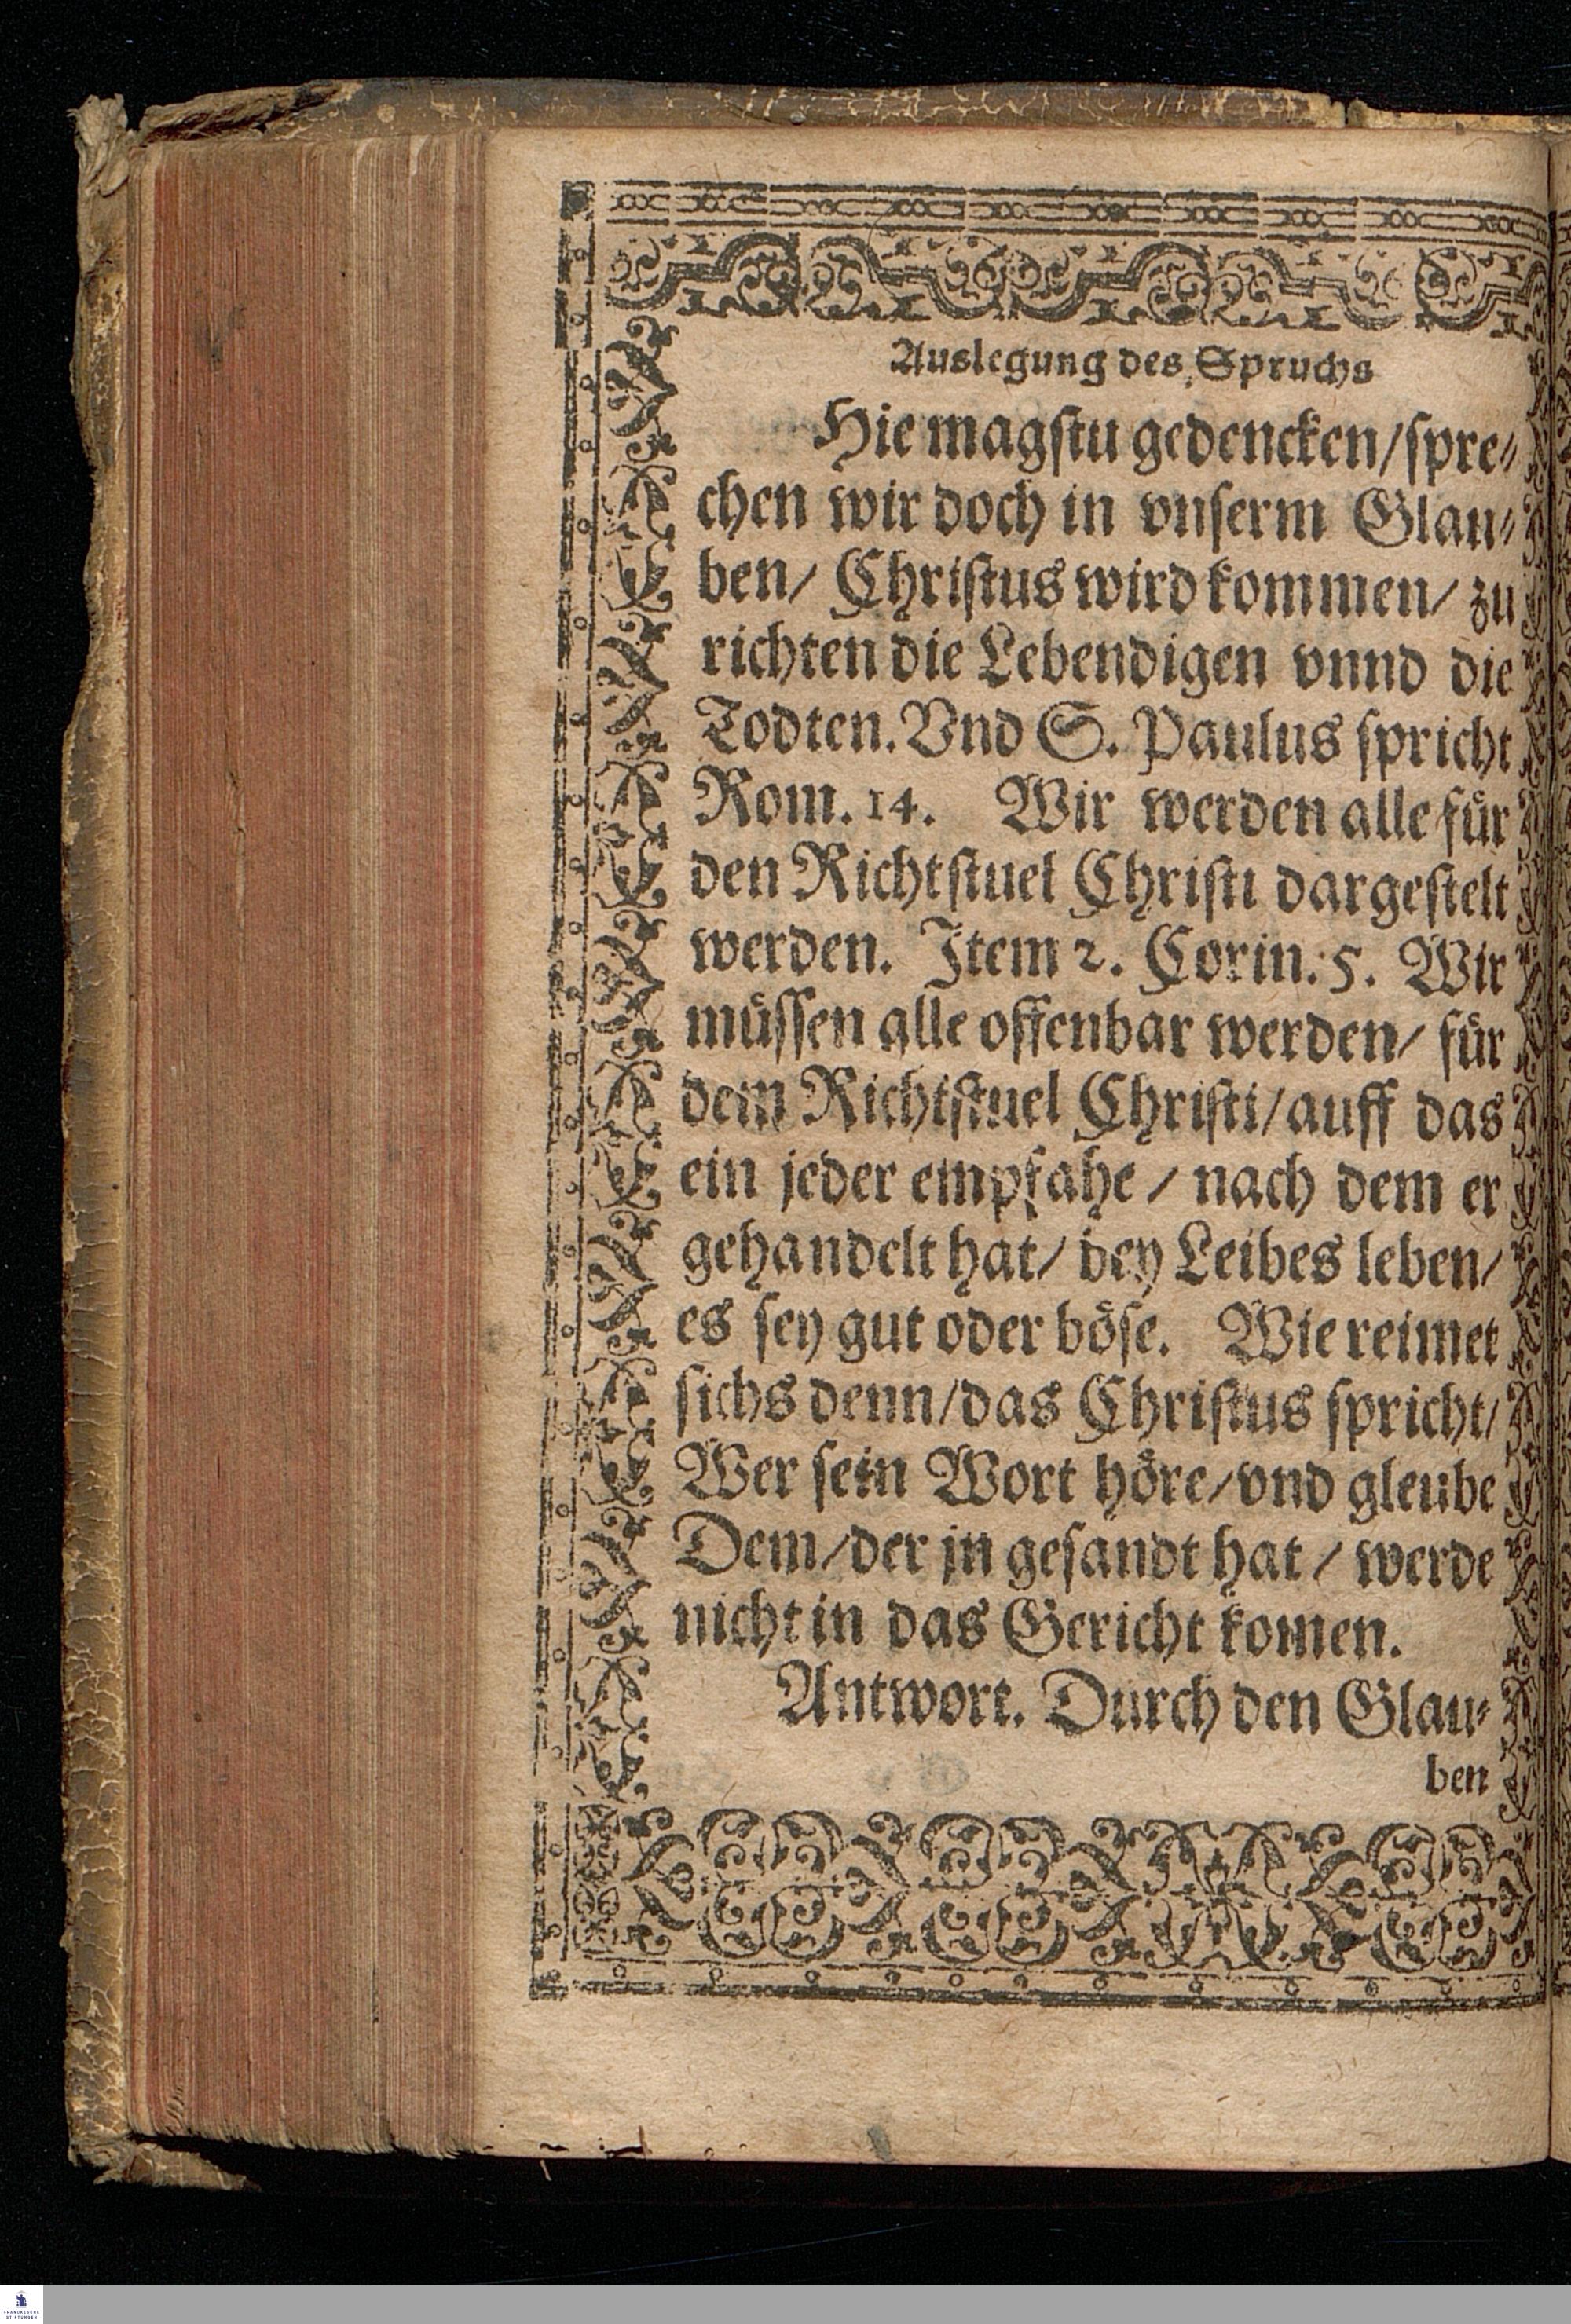 Auslegung des Spruchs
Hie magstu gedencken/spre-
chen wir doch in vnserm Glau-
ben/ Christus wird kommen/ zu
richten die Lebendigen vnnd die
Todten. Vnd S. Paulus spricht
Rom. 14. Wir werden alle für
den Richtstuel Christi dargestelt
werden. Item 2. Corin. 5. Wir
müssen alle offenbar werden/ für
dem Richtstuel Christi/auff das
ein jeder empfahe / nach dem er
gehandelt hat/ bey Leibes leben/
es sey gut oder böse. Wie reimet
sichs denn/das Christus spricht/
Wer sein Wort höre/vnd gleube
Dem/der jn gesandt hat / werde
nicht in das Gericht komen.
Antwort. Durch den Glau-
ben
FRANCKESCHE
STIFTUNGEN